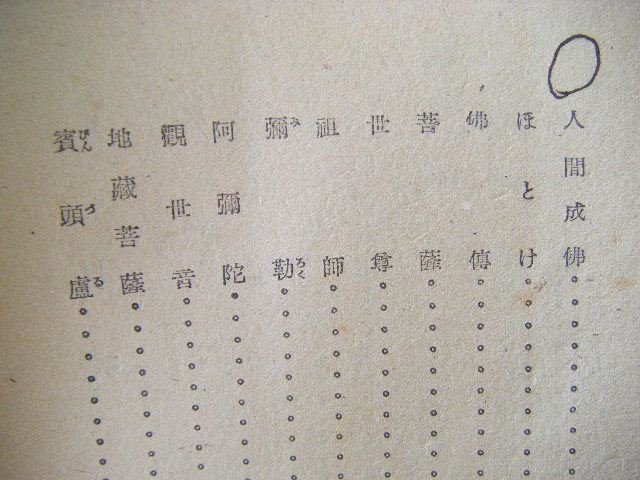 人間成佛
ほとけ
佛傳
菩薩
世尊
祖師
彌勒
みろく
阿彌陀
觀世音
地藏菩薩
賓頭盧
びんづる